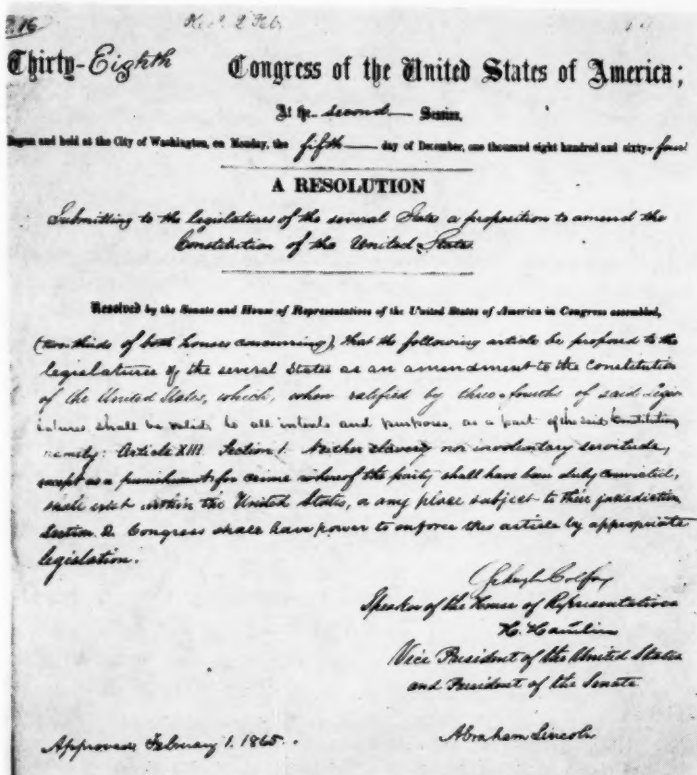 16
Thirty-Eighth Congress of the United States of America;
At the second Session,
Begun and held at the City of Washington, on Monday, the fifth day of December, one thousand eight hundred and sixty-four
A RESOLUTION
Submitting to the legislatures of the several States a proposition to amend the
Constitution of the United States
Resolved by the Senate and House of Representatives of the United States of America in Congress assembled,
(two-thirds of both houses concurring), that the following article be proposed to the
legislatures of the several States as an amendment to the Constitution
of the United States, which, when ratified by three-fourths of said Legis-
latures, shall be valid, to all intents and purposes, as a part of the said Constitution
namely: Article XIII. Section 1. Neither slavery nor involuntary servitude,
except as a punishment for crime whereof the party shall have been duly convicted,
shall exist within the United States, or any place subject to their jurisdiction
Section 2. Congress shall have power to enforce this article by appropriate
legislation.
Schuyler Colfax
Speaker of the House of Representatives
H. Hamlin
Vice President of the United States
and President of the Senate
Approved February 1. 1865. Abraham Lincoln